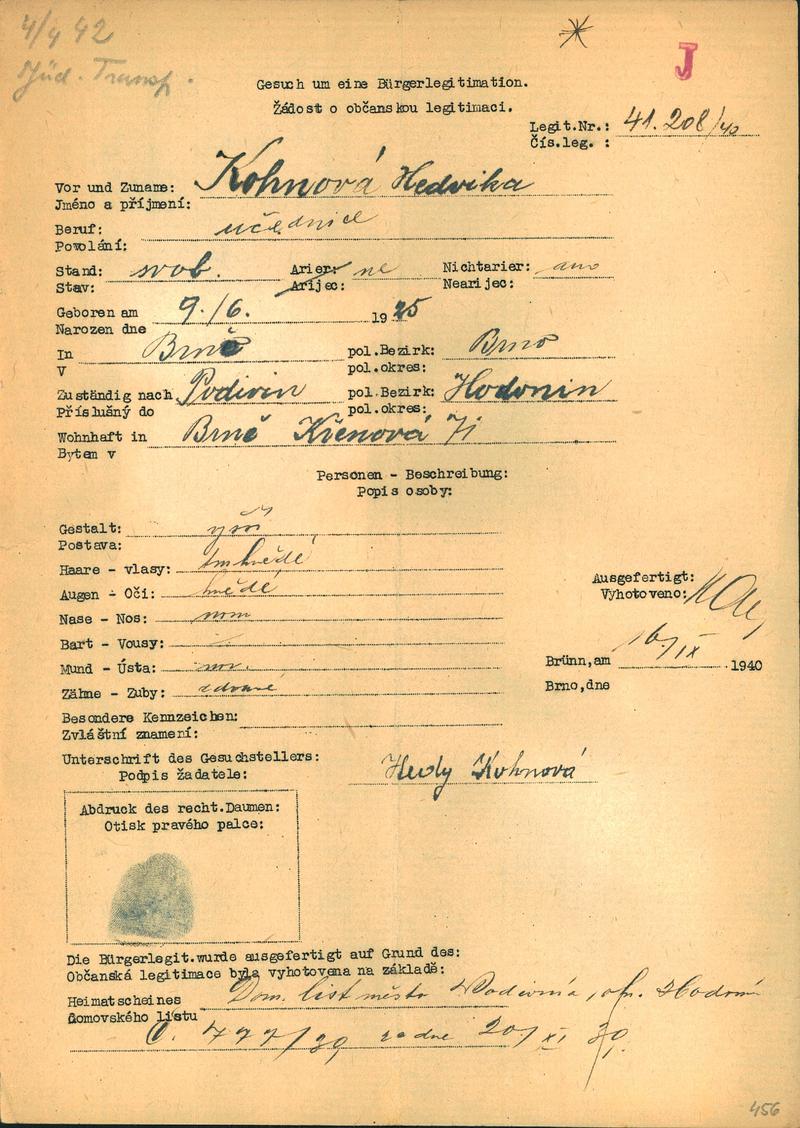 4/4 42
Jüd. Transp.
J
Gesuch um eine Bürgerlegitimation.
Žádost o občanskou legitimaci.
Legit.Nr.: 41.208/40
Čís.leg. :
Vor und Zuname: Kohnová Hedvika
Jméno a příjmení:
Beruf: učednice
Povolání:
Stand: svob. Arier: ne Nichtarier: ano
Stav: Arijec: Nearijec:
Geboren am 9./6. 1925
Narozen dne
In Brně pol.Bezirk: Brno
V pol.okres:
Zuständig nach Podivín pol.Bezirk: Hodonín
Příslušný do pol.okres:
Wohnhaft in Brně Křenová 71
Bytem v
Personen - Beschreibung:
Popis osoby:
Gestalt:
Postava:
Haare - vlasy: tmhnědé
Augen - Oči: hnědé
Nase - Nos: norm
Bart - Vousy:
Mund - Ústa: nor.
Zähne - Zuby: zdravé
Ausgefertigt:
Vyhotoveno:
Brünn,am 16/IX 1940
Brno,dne
Besondere Kennzeichen:
Zvláštní znamení:
Unterschrift des Gesuchstellers:
Podpis žadatele: Hedy Kohnová
Abdruck des recht.Daumen:
Otisk pravého palce:
Die Bürgerlegit.wurde ausgefertigt auf Grund des:
Občanská legitimace byla vyhotovena na základě:
Heimatscheines Dom. list město Podivína, okr. Hodonín
domovského listu
Č. 797/39 ze dne 20/XI 39.
456